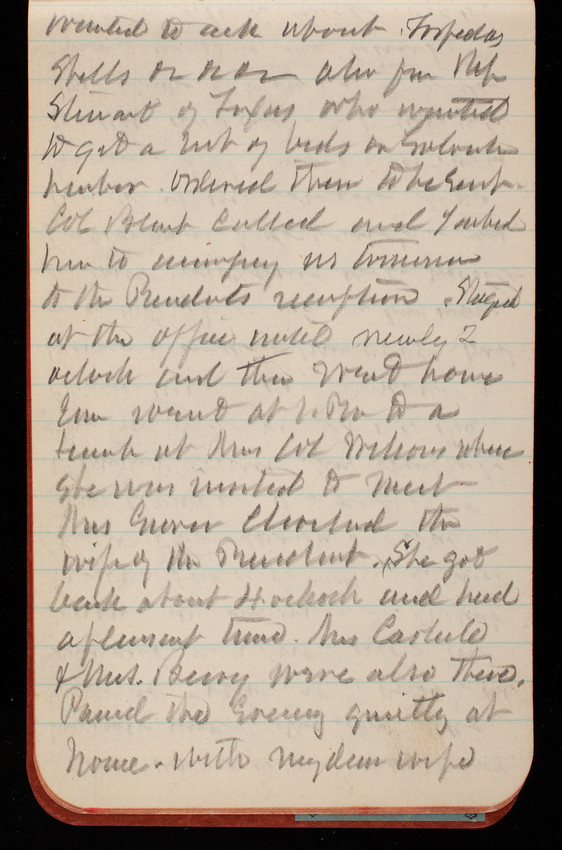 wanted to ask about Torpedos
Shells &c &c &c also for Rep
Stewart of Texas who wanted
to get a list of bids on Galveston
harbor. Ordered them to be sent.
Col Blunt called and I asked
him to accompany us tomorrow
to the Presidents reception. Stayed
at the office until nearly 2
oclock and then went home
Em went at 1.30 to a
lunch at Mrs Col Wilsons where
she was invited to meet
Mrs Grover Cleveland the
wife of the President. She got
back about 4 oclock and had
a pleasant time. Mrs Carlisle
& Mrs. Berry were also there.
Passed the Evening quietly at
home. with my dear wife